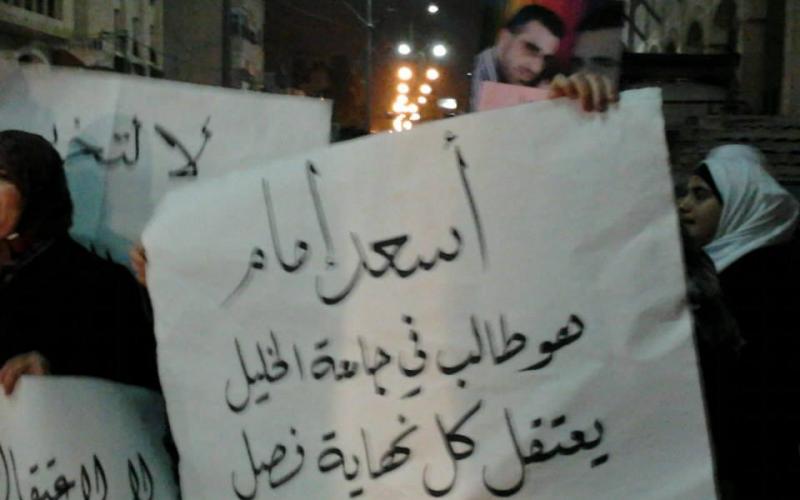 أسعد إمام
هو طالب في جامعة الخليل
يعتقل كل نهاية فصل
لا
لا للاعتقال